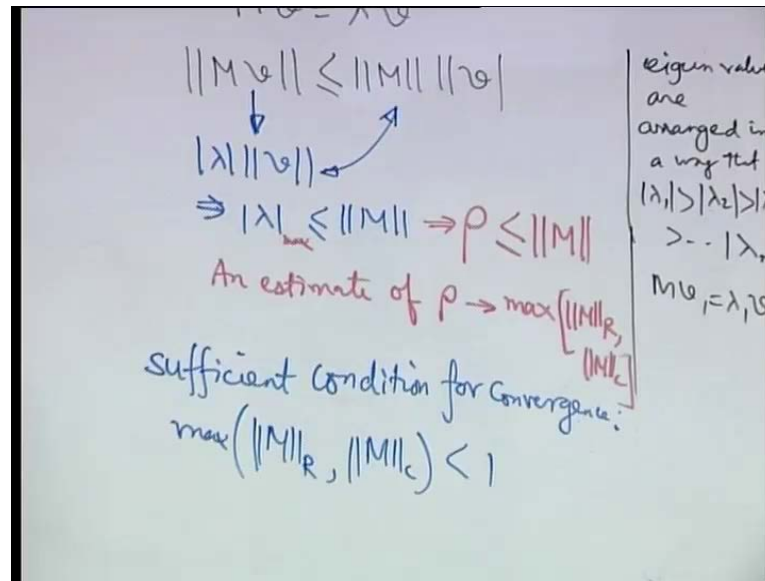 Mv = λv
||Mv|| ≤ ||M|| ||v|
|λ| ||v||
⇒ |λ|max ≤ ||M|| → ρ ≤ ||M||
An estimate of ρ → max[||M||R,
||M||c]
sufficient condition for convergence:
max(||M||R, ||M||c) < 1
eigen value
are
arranged in
a way that
|λ1| > |λ2| > |λ
> -- |λ
Mv1 = λ1v